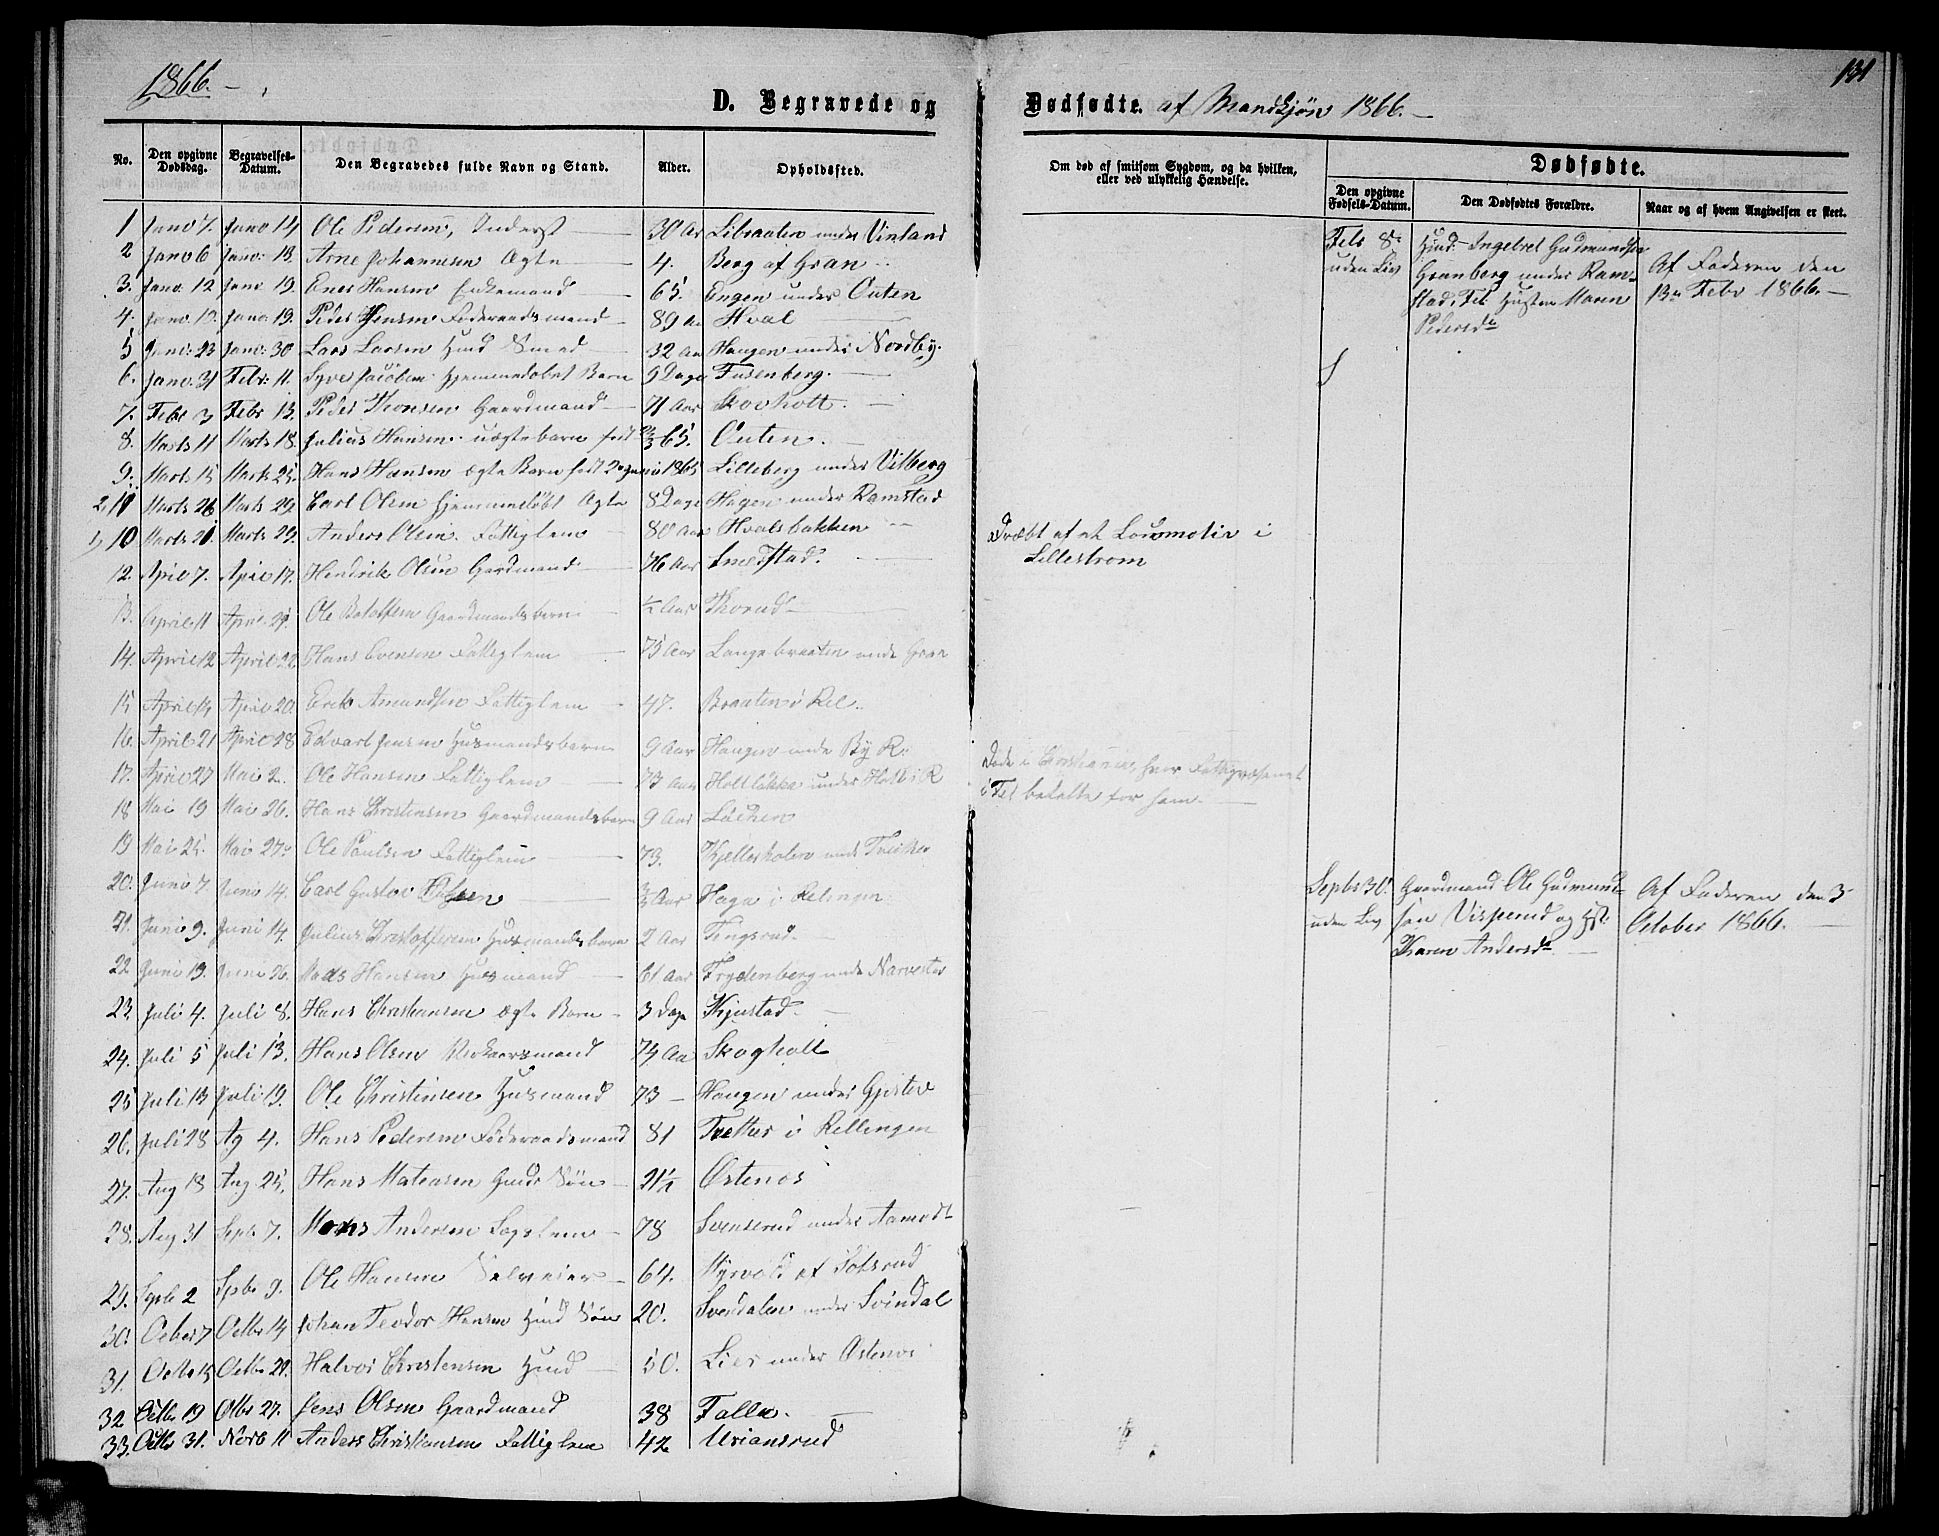 1866.
131
D. Begravede og Dødfødte. af Mandkjøn 1866.
No. Den opgivne Dødsdag. Begravelses-Datum. Den Begravedes fulde Navn og Stand. Alder. Opholdssted.
Om død af smitsom Sygdom, og da hvilken, eller ved ulykkelig Hændelse.
Dødfødte.
Den opgivne Fødsels-Datum. Den Dødfødtes Forældre. Naar og af hvem Angivelsen er skeet.
1 Janv 7. Janv 14 Ole Pedersen, Inderst 30 Aar under Vinland
2 Janv 6 Janv. 13. Arne Johannesen Ægte 4. Berg af Gran
3. Janv. 12 Janv 19. Hansen Enkemand 65. Engen under Outen
4. Janv. 19. Peder Jensen Føderaadsmand 89 Aar Hval
5 Janv. 23 Janv. 30 Lars Larsen Husmd Smed 32 Aar Haugen under Nordby.
6. Janv. 31 Febr. 11. Syver Jacobsen Hjemmedøbt Barn 9 Dage Fusenberg.
7. Febr 3 Febr 13. Peder Gaardmand 71 Aar Skovholt.
8. Marts 11 Marts 18. Julius Hansen uægte barn født 65. Outen.
9. Marts 15 Marts 25. Hans Hansen ægte Barn født 1865 Lilleberg under Vilberg
2, 11 Marts 26 Marts 29 Carl Olsen hjemmedøbt Ægte 8 Dage Hagen under Ramstad
1, 10 Marts 21. Marts 29. Anders Olsen. Fattiglem 80 Aar Hvalsbakken
Dræbt af et Locomotiv i
Lillestrøm
12. April 7. April 17. Hendrik Olsen Gardmand 76 Aar Smedstad.
13. April 11 April 21. Ole Gaardmandsbarn 1/2 Aar Thorud
14. April 12 April Hans Evensen Fattiglem 75 Aar Langebraaten under Gran
15 April 14 April 20. Erik Amundsen Fattiglem 47. Braaten i Rel.
16. April 21 April 28 Edvart Jensen Husmandsbarn 9 Aar Haugen under By R.
17. April 27 Mai 2. Ole Hansen Fattiglem 73 Aar Holtløkka under Holt i R
Døde i Christiania, hvor Fattigvæsenet
i Fet betalte for ham.
18 Mai 19 Mai 26. Hans Christensen Gaardmandsbarn 9 Aar Løchen
19 Mai 21. Mai 27. Ole Paulsen Fattiglem 73. Kjellerholen under
20. Juni 7. Juni 14. Carl Gustav 3/4 Aar Haga i Relingen
21. Juni 9. Juni 14. Julius Christoffersen Husmandsbarn 2 Aar Tengsrud
22 Juni 19. Juni 26. Mads Hansen Husmand 61 Aar Frydenberg under Narvestad
23. Juli 4. Juli 8. Hans Christiansen ægte Barn 3 Dage Kjustad
24. Juli 5 Juli 13. Hans Olsen 74 Aar Skogholt
25 Juli 13 Juli 19. Ole Christensen Husmand 73 Haugen under Gjestev
26. Juli 28 Ag 4. Hans Pedersen Føderaadsmand 81 Tretter i Rellingen
27. Aug 18 Aug 25. Hans Mateasen Gmds Søn 21 1/2 Østenos
28. Aug 31 Sepb 7. Mons Andersen Lægslem 78 Svenserud under Aamodt
29. Sepb 2 Spb 9. Ole Hansen Selveier 64. Nyvold af
30. Ocber 7 Octbr 14 Johan Teodor Hansen Hmd Søn 20. Svendalen under Svindal
31. Octb 15 Octbr 21. Halvor Christensen Husmd 50. Lier under Østenos
32 Octbr 19 Octbr 27. Jens Olsen Gaardmand 38 Falla.
33. Octb 31. Novb 11 Anders Christiansen Fattiglem 42 Uriansrud
Febr 8
uden Liv
Husmd. Ingebret Gudmundsen
Granberg under Ram-
stad, Fet Hustru Maren
Pedersdr
Af Faderen den
13de Febr 1866.
Septbr 30.
uden Liv
Gaardmand Ole Gudmund-
sen Visperud og Hst.
Karen Andersdr.
Af Faderen den 3
October 1866.